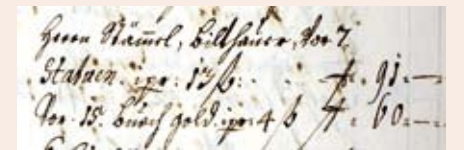 Herrn Stämmel, Bildhauer, vor 7
Statuen. ipr: 13 ß: . . f. 91.—
Vor. 15. buech gold. ipr 4 ß f. 60.—.